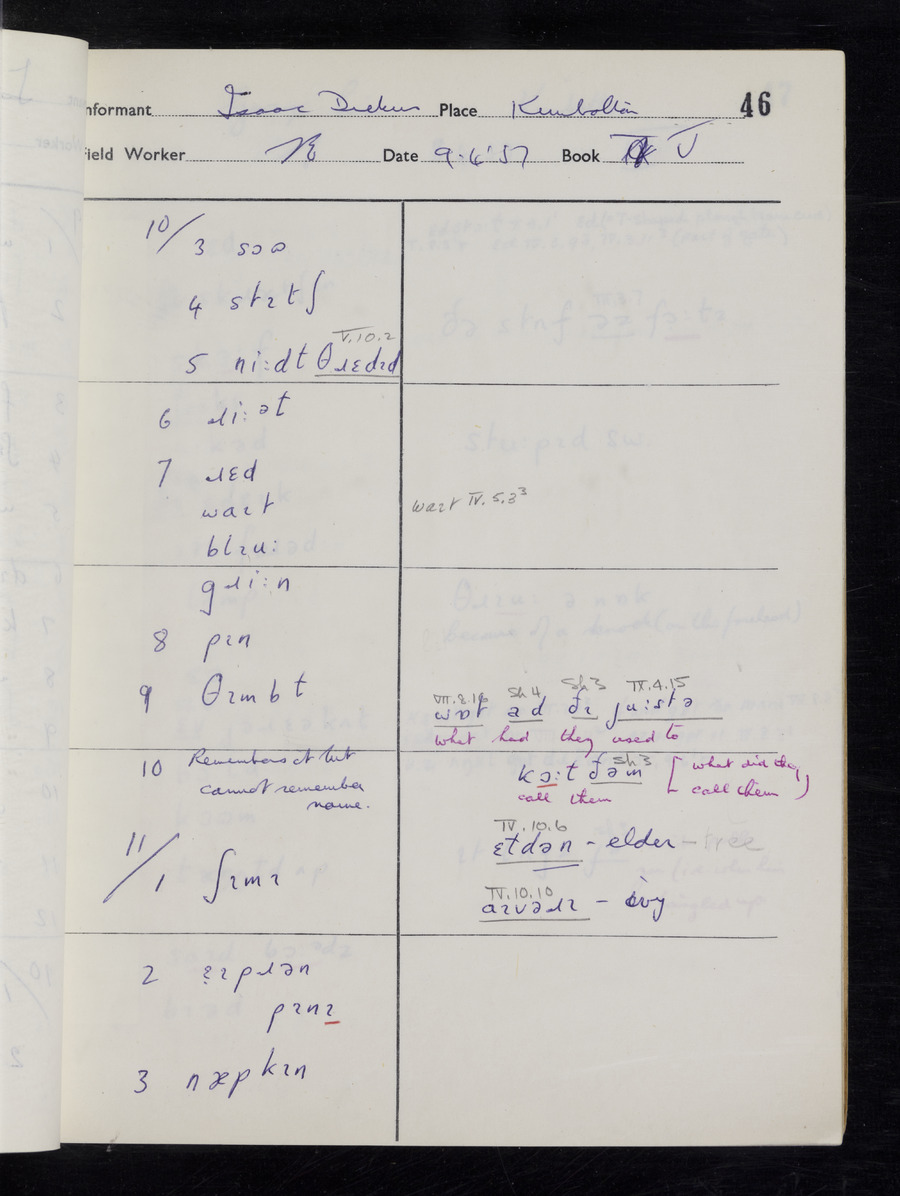 46
Informant Isaac Place Kimbolton
Field Worker Date 9.6.57 Book V
10/ 3 soə
4 stɪtʃ
V.10.2
5 ni:dɫ θɹɛdɪd
6 ɹi:əɫ
7 ɹɛd
waɪt
waɪt IV.5.3³
blɪu:
gɹi:n
8 pɪn
9 θɪmbɫ
VII.8.16 Sh4 Sh3 IX.4.15
wɒt əd ðɪ ju:stə
what had they used to
10 Remembers it but
cannot remember
name.
Sh3
kɔ:ɫ ðəm [what did they
call them call them]
IV.10.6
ɛɫdən - elder - tree
11/ 1 ʃɪmɪ
IV.10.10
aɪvəɹɪ - ivy
2 ɛɪpɹən
pɪnɪ
3 næpkɪn